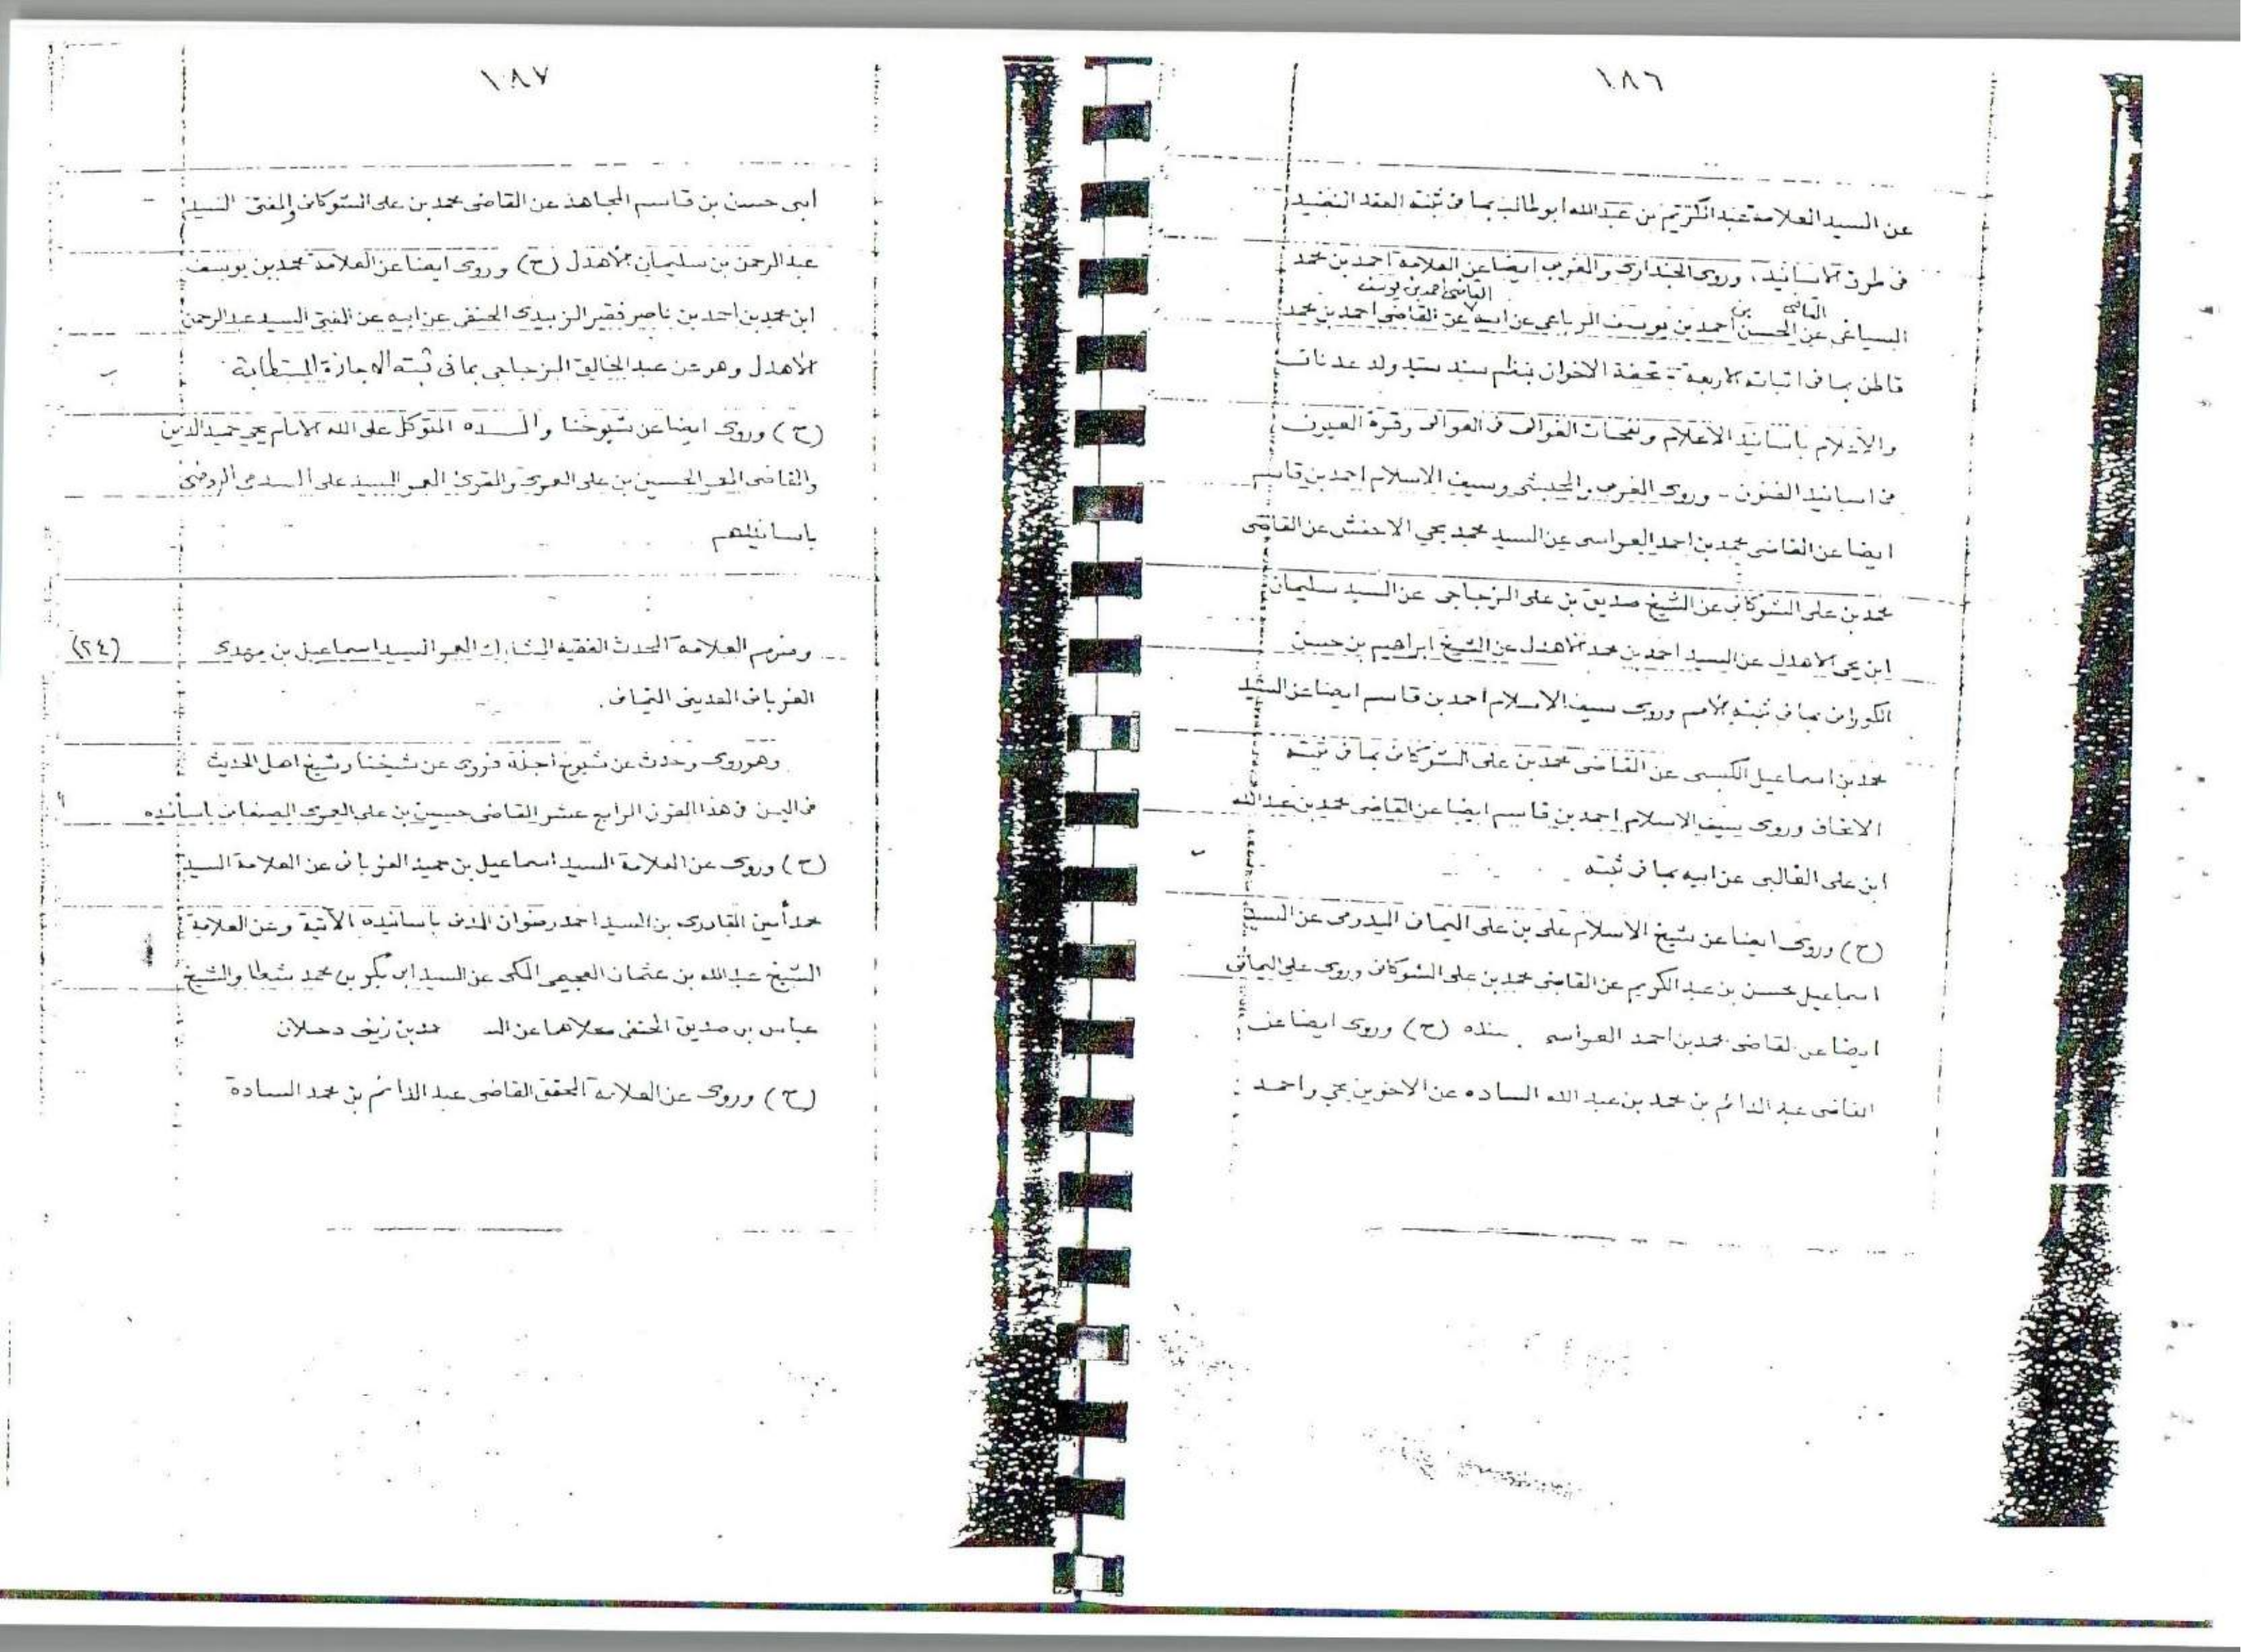 ١٨٦
عن السيد العلامة عبد الكريم بن عبد الله ابو طالب بما في ثبته العقد النضيد
في طرق الاسانيد، وروى الجنداري والغربي ايضا عن العلامة احمد بن محمد
القاضي بن القاضي احمد بن يوسف
السياغي عن الحسن احمد بن يوسف الرباعي عن ابيه عن القاضي احمد بن محمد
قاطن بما في اثباته الاربعة - تحفة الاخوان بنظم سند سيد ولد عدنان
والاعلام باسانيد الاعلام ونفحات الغوالي في العوالي وقرة العيون
في اسانيد الفنون - وروى الغربي والحبشي وسيف الاسلام احمد بن قاسم
ايضا عن القاضي محمد بن احمد العراسي عن السيد محمد يحي الاخفش عن القاضي
محمد بن علي الشوكاني عن الشيخ صديق بن علي المزجاجي عن السيد سليمان
ابن يحي الاهدل عن السيد احمد بن محمد الاهدل عن الشيخ ابراهيم بن حسن
الكوراني بما في ثبته الأمم وروى سيف الاسلام احمد بن قاسم ايضا عن السيد
محمد بن اسماعيل الكبسي عن القاضي محمد بن علي الشوكاني بما في ثبته
الاتحاف وروى سيف الاسلام احمد بن قاسم ايضا عن القاضي محمد بن عبد الله
ابن علي الغالبي عن ابيه بما في ثبته
(ح) وروى ايضا عن شيخ الاسلام علي بن علي اليماني اليدومي عن السيد
اسماعيل محسن بن عبد الكريم عن القاضي محمد بن علي الشوكاني وروى علي اليماني
ايضا عن القاضي محمد بن احمد العراسي بسنده (ح) وروى ايضا عن
القاضي عبد الدائم بن محمد بن عبد الله الساده عن الاخوين يحي واحمد
١٨٧
ابني حسن بن قاسم المجاهد عن القاضي محمد بن علي الشوكاني والمفتي السيد
عبد الرحمن بن سليمان الأهدل (ح) وروى ايضا عن العلامة محمد بن يوسف
ابن محمد بن احمد بن ناصر فقير الزبيدي الحنفي عن ابيه عن المفتي السيد عبد الرحمن
الأهدل وهو عن عبد الخالق المزجاجي بما في ثبته الاجازة المستطابة
(ح) وروى ايضا عن شيوخنا والده المتوكل على الله الامام يحي حميد الدين
والقاضي المعمر الحسين بن علي العمري والمقري المعمر السيد علي السدمي الروضي
باسانيدهم
ومنهم العلامة المحدث الفقيه المشارك المعمر السيد اسماعيل بن مهدي (٢٤)
الغرباني المديني اليماني.
وهو روى وحدث عن شيوخ أجلة فروى عن شيخنا وشيخ اهل الحديث
في اليمن في هذا القرن الرابع عشر القاضي حسين بن علي العمري الصنعاني باسانيده
(ح) وروى عن العلامة السيد اسماعيل بن حميد الغرباني عن العلامة السيد
محمد أمين القادري بن السيد احمد رضوان المدني باسانيده الآتية وعن العلامة
الشيخ عبد الله بن عثمان العجيمي المكي عن السيد ابي بكر بن محمد شطا والشيخ
عباس بن صديق الحنفي كلاهما عن زيني دحلان
(ح) وروى عن العلامة المحقق القاضي عبد الدائم بن محمد السادة